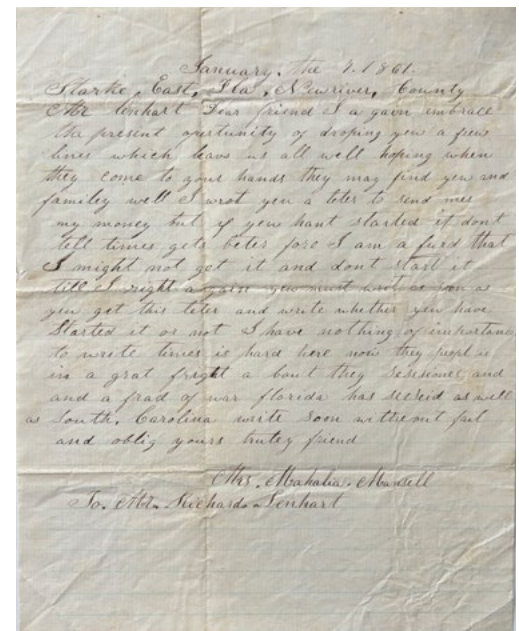 January. the 7. 1861.
Starke, East, Fla, Newriver, County
Mr Lenhart Dear friend I a gavn embrace
the present opertunity of droping you a few
lines which leavs us all well hoping when
they come to your hands they may find you and
familey well I wrot you a leter to send me
my money but if you hant started it dont
till times gets beter fore I am a furd that
I might not get it and dont start it
till I right a gavn you must write as soon as
you get this leter and write whether you have
Started it or not I have nothing of importance
to write times is hard here now they peopl is
in a grat fright a bout they Sesision and
and a frad of war florida has seceid as well
as South, Carolina write soon without fail
and oblig yours truley friend
Mrs. Mahalia. Mansell
To. Mr. Richard. Lenhart